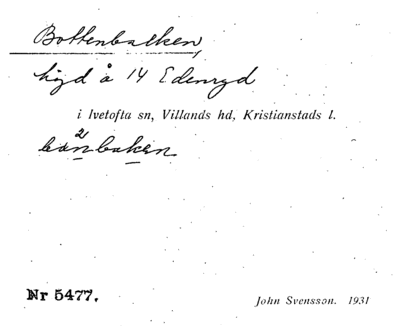 Bottenbacken,
höjd å 14 Edenryd
i Ivetofta sn, Villands hd, Kristianstads l.
Nr 5477.
John Svensson. 1931